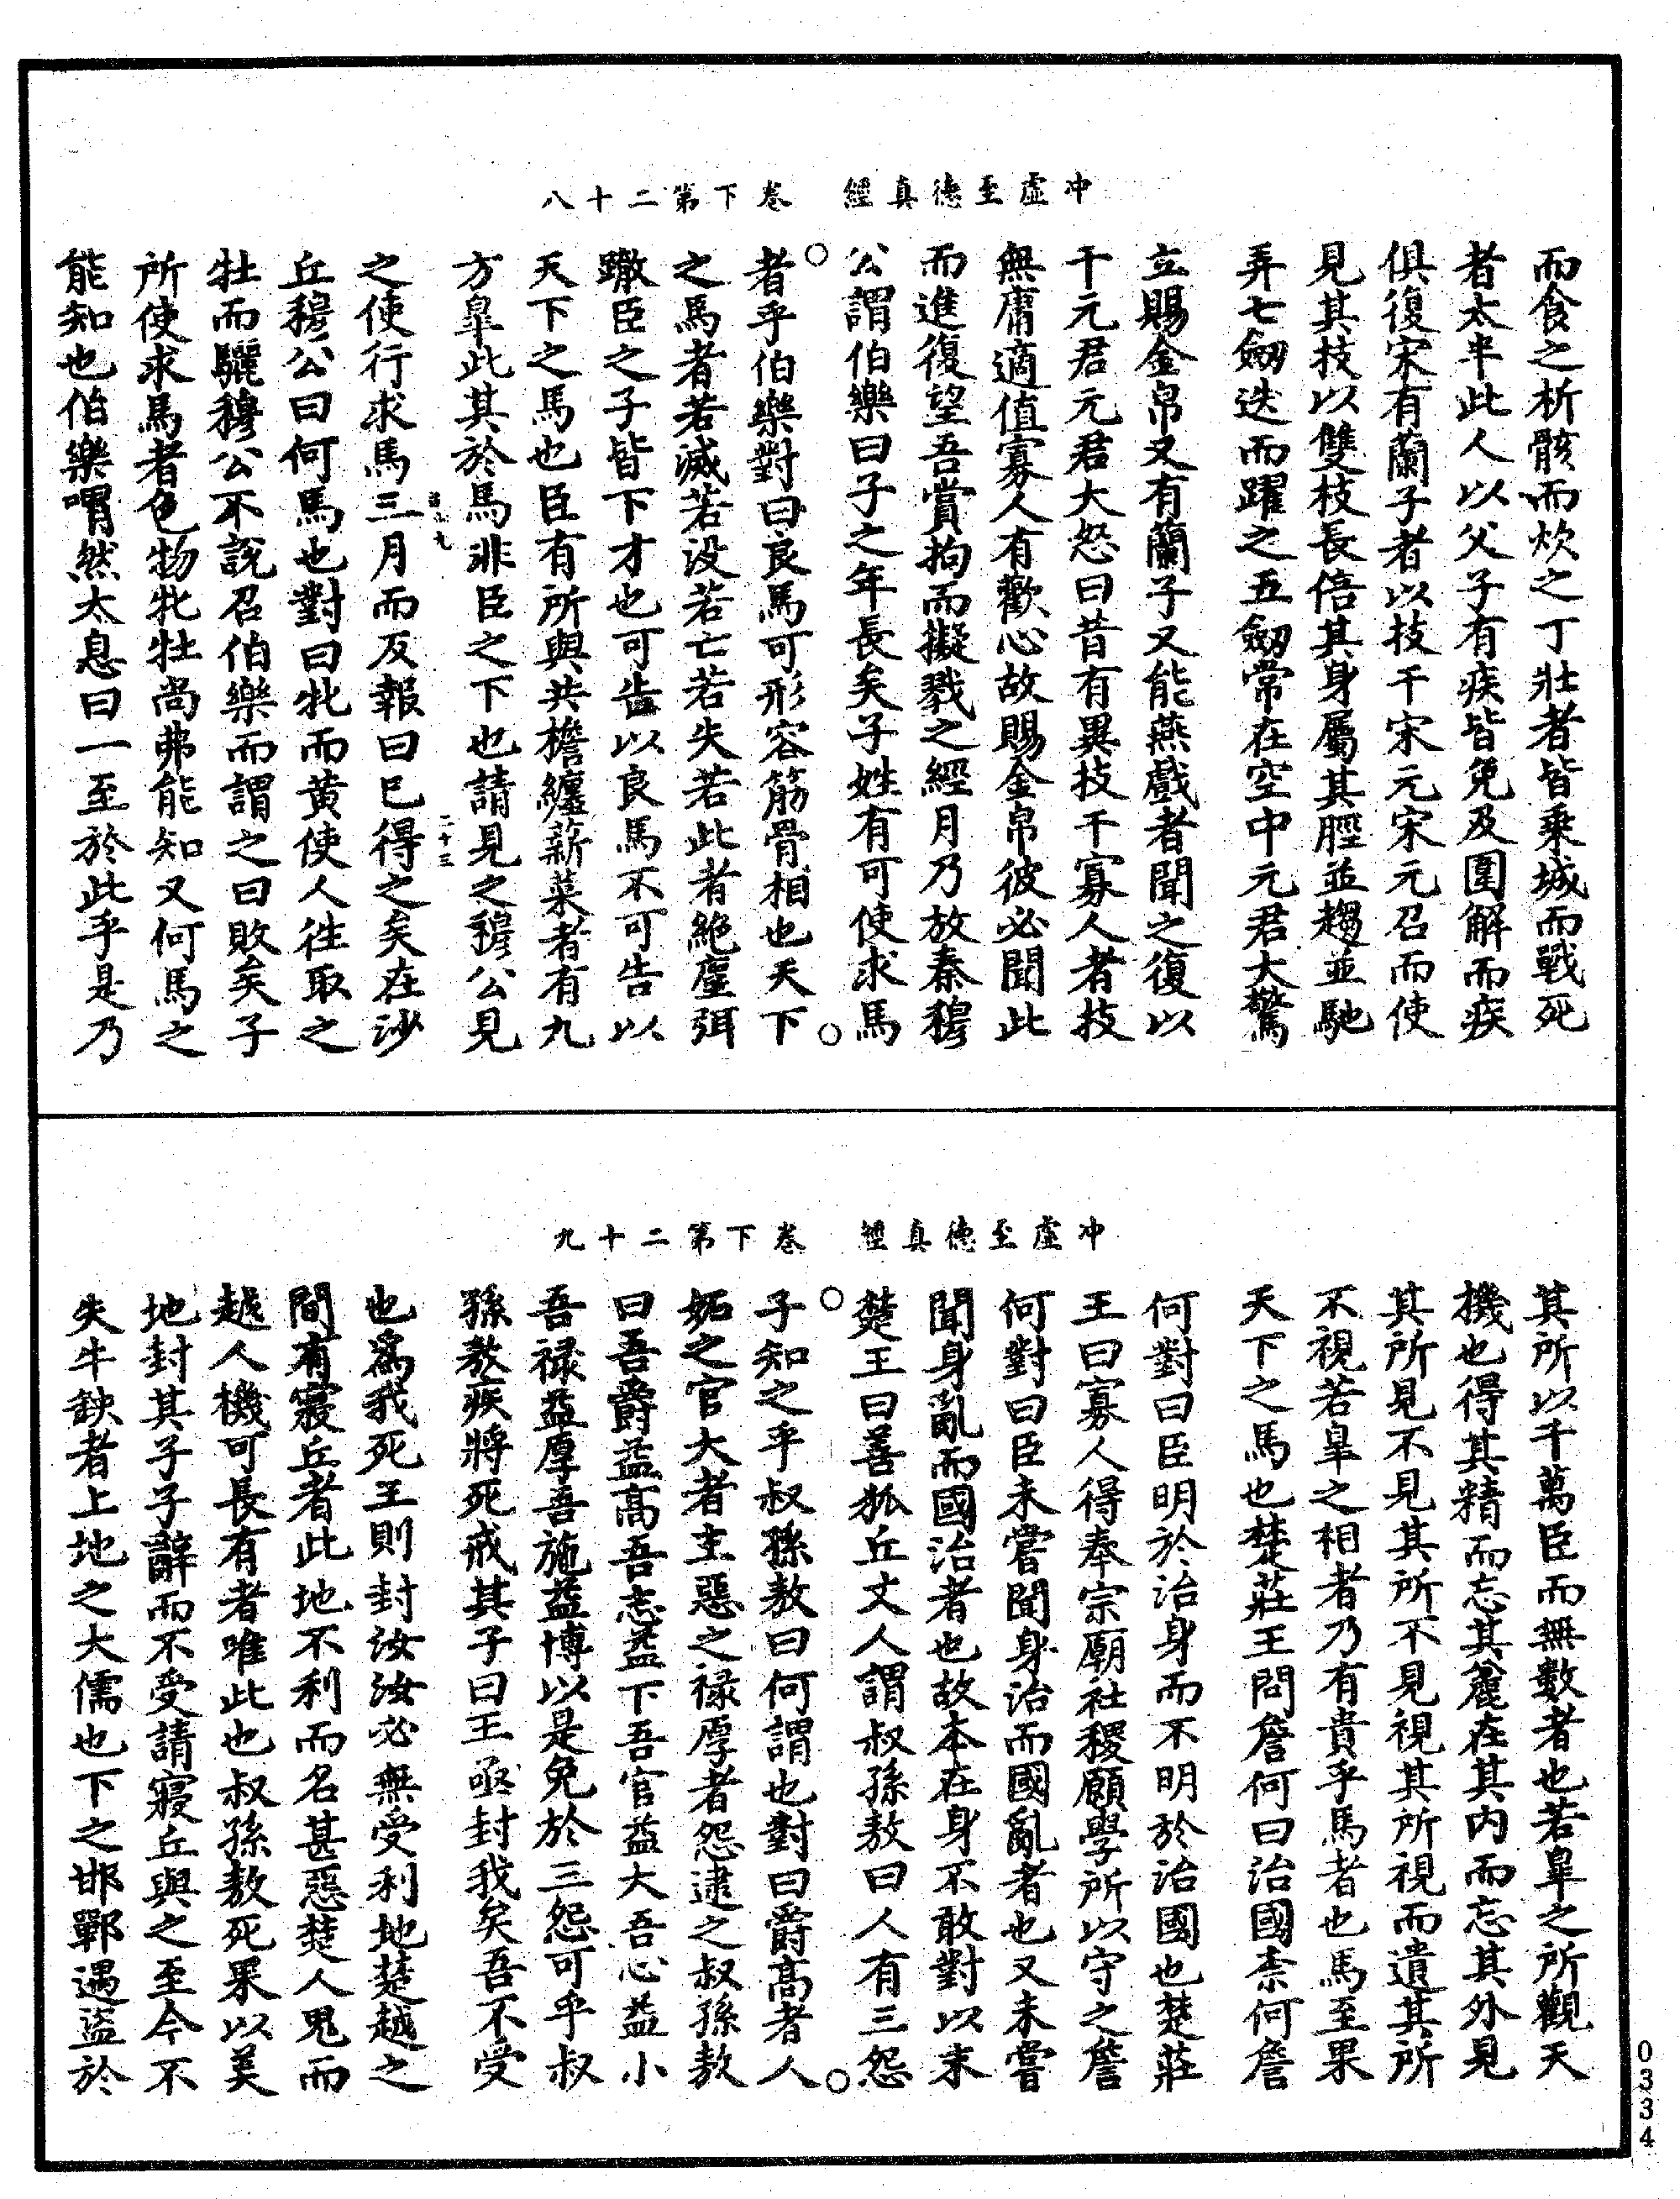 冲虛至德真經　卷下第二十八
而食之析骸而炊之丁壯者皆乘城而戰死
者太半此人以父子有疾皆免及圍解而疾
俱復宋有蘭子者以技干宋元宋元召而使
見其技以雙枝長倍其身屬其脛並趨並馳
弄七劒迭而躍之五劒常在空中元君大驚
立賜金帛又有蘭子又能燕戲者聞之復以
干元君元君大怒曰昔有異技干寡人者技
無庸適值寡人有歡心故賜金帛彼必聞此
而進復望吾賞拘而擬戮之經月乃放秦穆
公謂伯樂曰子之年長矣子姓有可使求馬
者乎伯樂對曰良馬可形容筋骨相也天下
之馬者若滅若沒若亡若失若此者絕塵弭
轍臣之子皆下才也可告以良馬不可告以
天下之馬也臣有所與共擔纏薪菜者有九
方臯此其於馬非臣之下也請見之穆公見
二十三
之使行求馬三月而反報曰已得之矣在沙
丘穆公曰何馬也對曰牝而黃使人往取之
牡而驪穆公不說召伯樂而謂之曰敗矣子
所使求馬者色物牝牡尚弗能知又何馬之
能知也伯樂喟然太息曰一至於此乎是乃
冲虛至德真經　卷下第二十九
其所以千萬臣而無數者也若臯之所觀天
機也得其精而忘其麄在其內而忘其外見
其所見不見其所不見視其所視而遺其所
不視若臯之相者乃有貴乎馬者也馬至果
天下之馬也楚莊王問詹何曰治國柰何詹
何對曰臣明於治身而不明於治國也楚莊
王曰寡人得奉宗廟社稷願學所以守之詹
何對曰臣未嘗聞身治而國亂者也又未嘗
聞身亂而國治者也故本在身不敢對以末
楚王曰善狐丘丈人謂叔孫敖曰人有三怨
子知之乎叔孫敖曰何謂也對曰爵高者人
妬之官大者主惡之祿厚者怨逮之叔孫敖
曰吾爵益高吾志益下吾官益大吾心益小
吾祿益厚吾施益博以是免於三怨可乎叔
孫敖疾將死戒其子曰王亟封我矣吾不受
也爲我死王則封汝汝必無受利地楚越之
間有寢丘者此地不利而名甚惡楚人鬼而
越人機可長有者唯此也叔孫敖死果以美
地封其子子辭而不受請寢丘與之至今不
失牛缺者上地之大儒也下之邯鄲遇盜於
0334